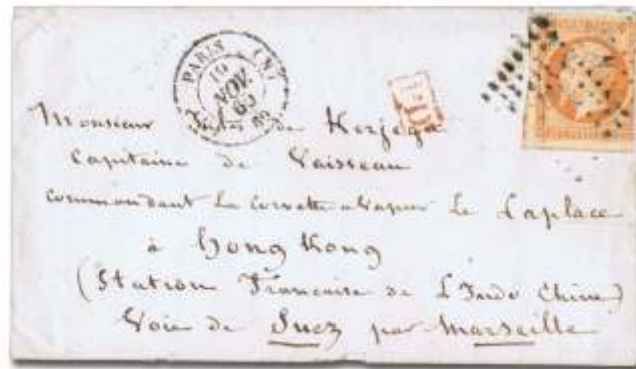 PARIS (N)
NOV
60
PD
Monsieur Jules de Kerjégu
Capitaine de Vaisseau
Commandant la Corvette à Vapeur Le Laplace
à Hong Kong
(Station Française de L'Indo Chine)
Voie de Suez par Marseille